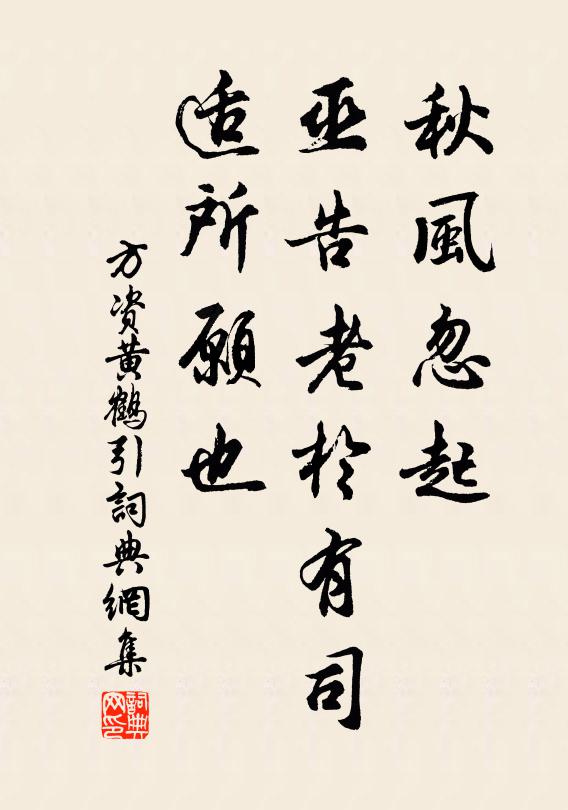 秋風忽起
亟告老於有司
适所願也
方资黄鶴引詞典網集
詞典网印